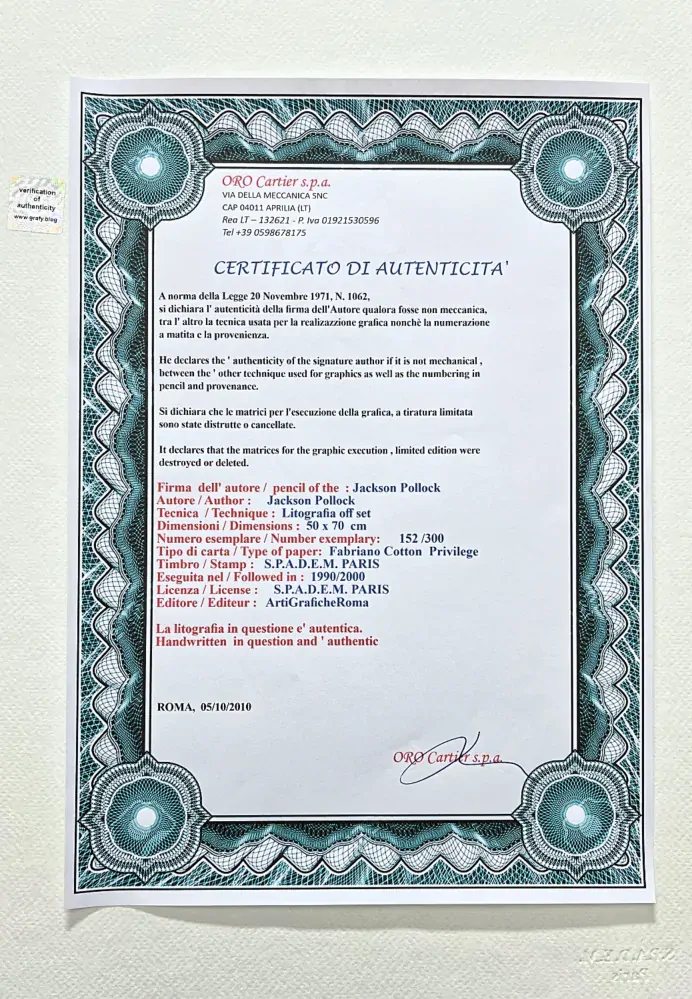 verification
of
authenticity
www.grafy.blog
ORO Cartier s.p.a.
VIA DELLA MECCANICA SNC
CAP 04011 APRILIA (LT)
Rea LT – 132621 - P. Iva 01921530596
Tel +39 0598678175
CERTIFICATO DI AUTENTICITA'
A norma della Legge 20 Novembre 1971, N. 1062,
si dichiara l' autenticità della firma dell'Autore qualora fosse non meccanica,
tra l' altro la tecnica usata per la realizazzione grafica nonchè la numerazione
a matita e la provenienza.
He declares the ' authenticity of the signature author if it is not mechanical ,
between the ' other technique used for graphics as well as the numbering in
pencil and provenance.
Si dichiara che le matrici per l'esecuzione della grafica, a tiratura limitata
sono state distrutte o cancellate.
It declares that the matrices for the graphic execution , limited edition were
destroyed or deleted.
Firma dell' autore / pencil of the : Jackson Pollock
Autore / Author : Jackson Pollock
Tecnica / Technique : Litografia off set
Dimensioni / Dimensions : 50 x 70 cm
Numero esemplare / Number exemplary: 152 /300
Tipo di carta / Type of paper: Fabriano Cotton Privilege
Timbro / Stamp : S.P.A.D.E.M. PARIS
Eseguita nel / Followed in : 1990/2000
Licenza / License : S.P.A.D.E.M. PARIS
Editore / Editeur : ArtiGraficheRoma
La litografia in questione e' autentica.
Handwritten in question and ' authentic
ROMA, 05/10/2010
ORO Cartier s.p.a.
S.P.A.D.E.M.
Paris